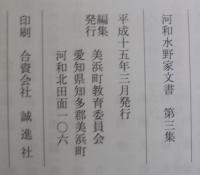 河和水野家文書 第三集
平成十五年三月発行
編集 美浜町教育委員会
発行
愛知県知多郡美浜町
河和北田面一〇六
印刷 合資会社 誠進社